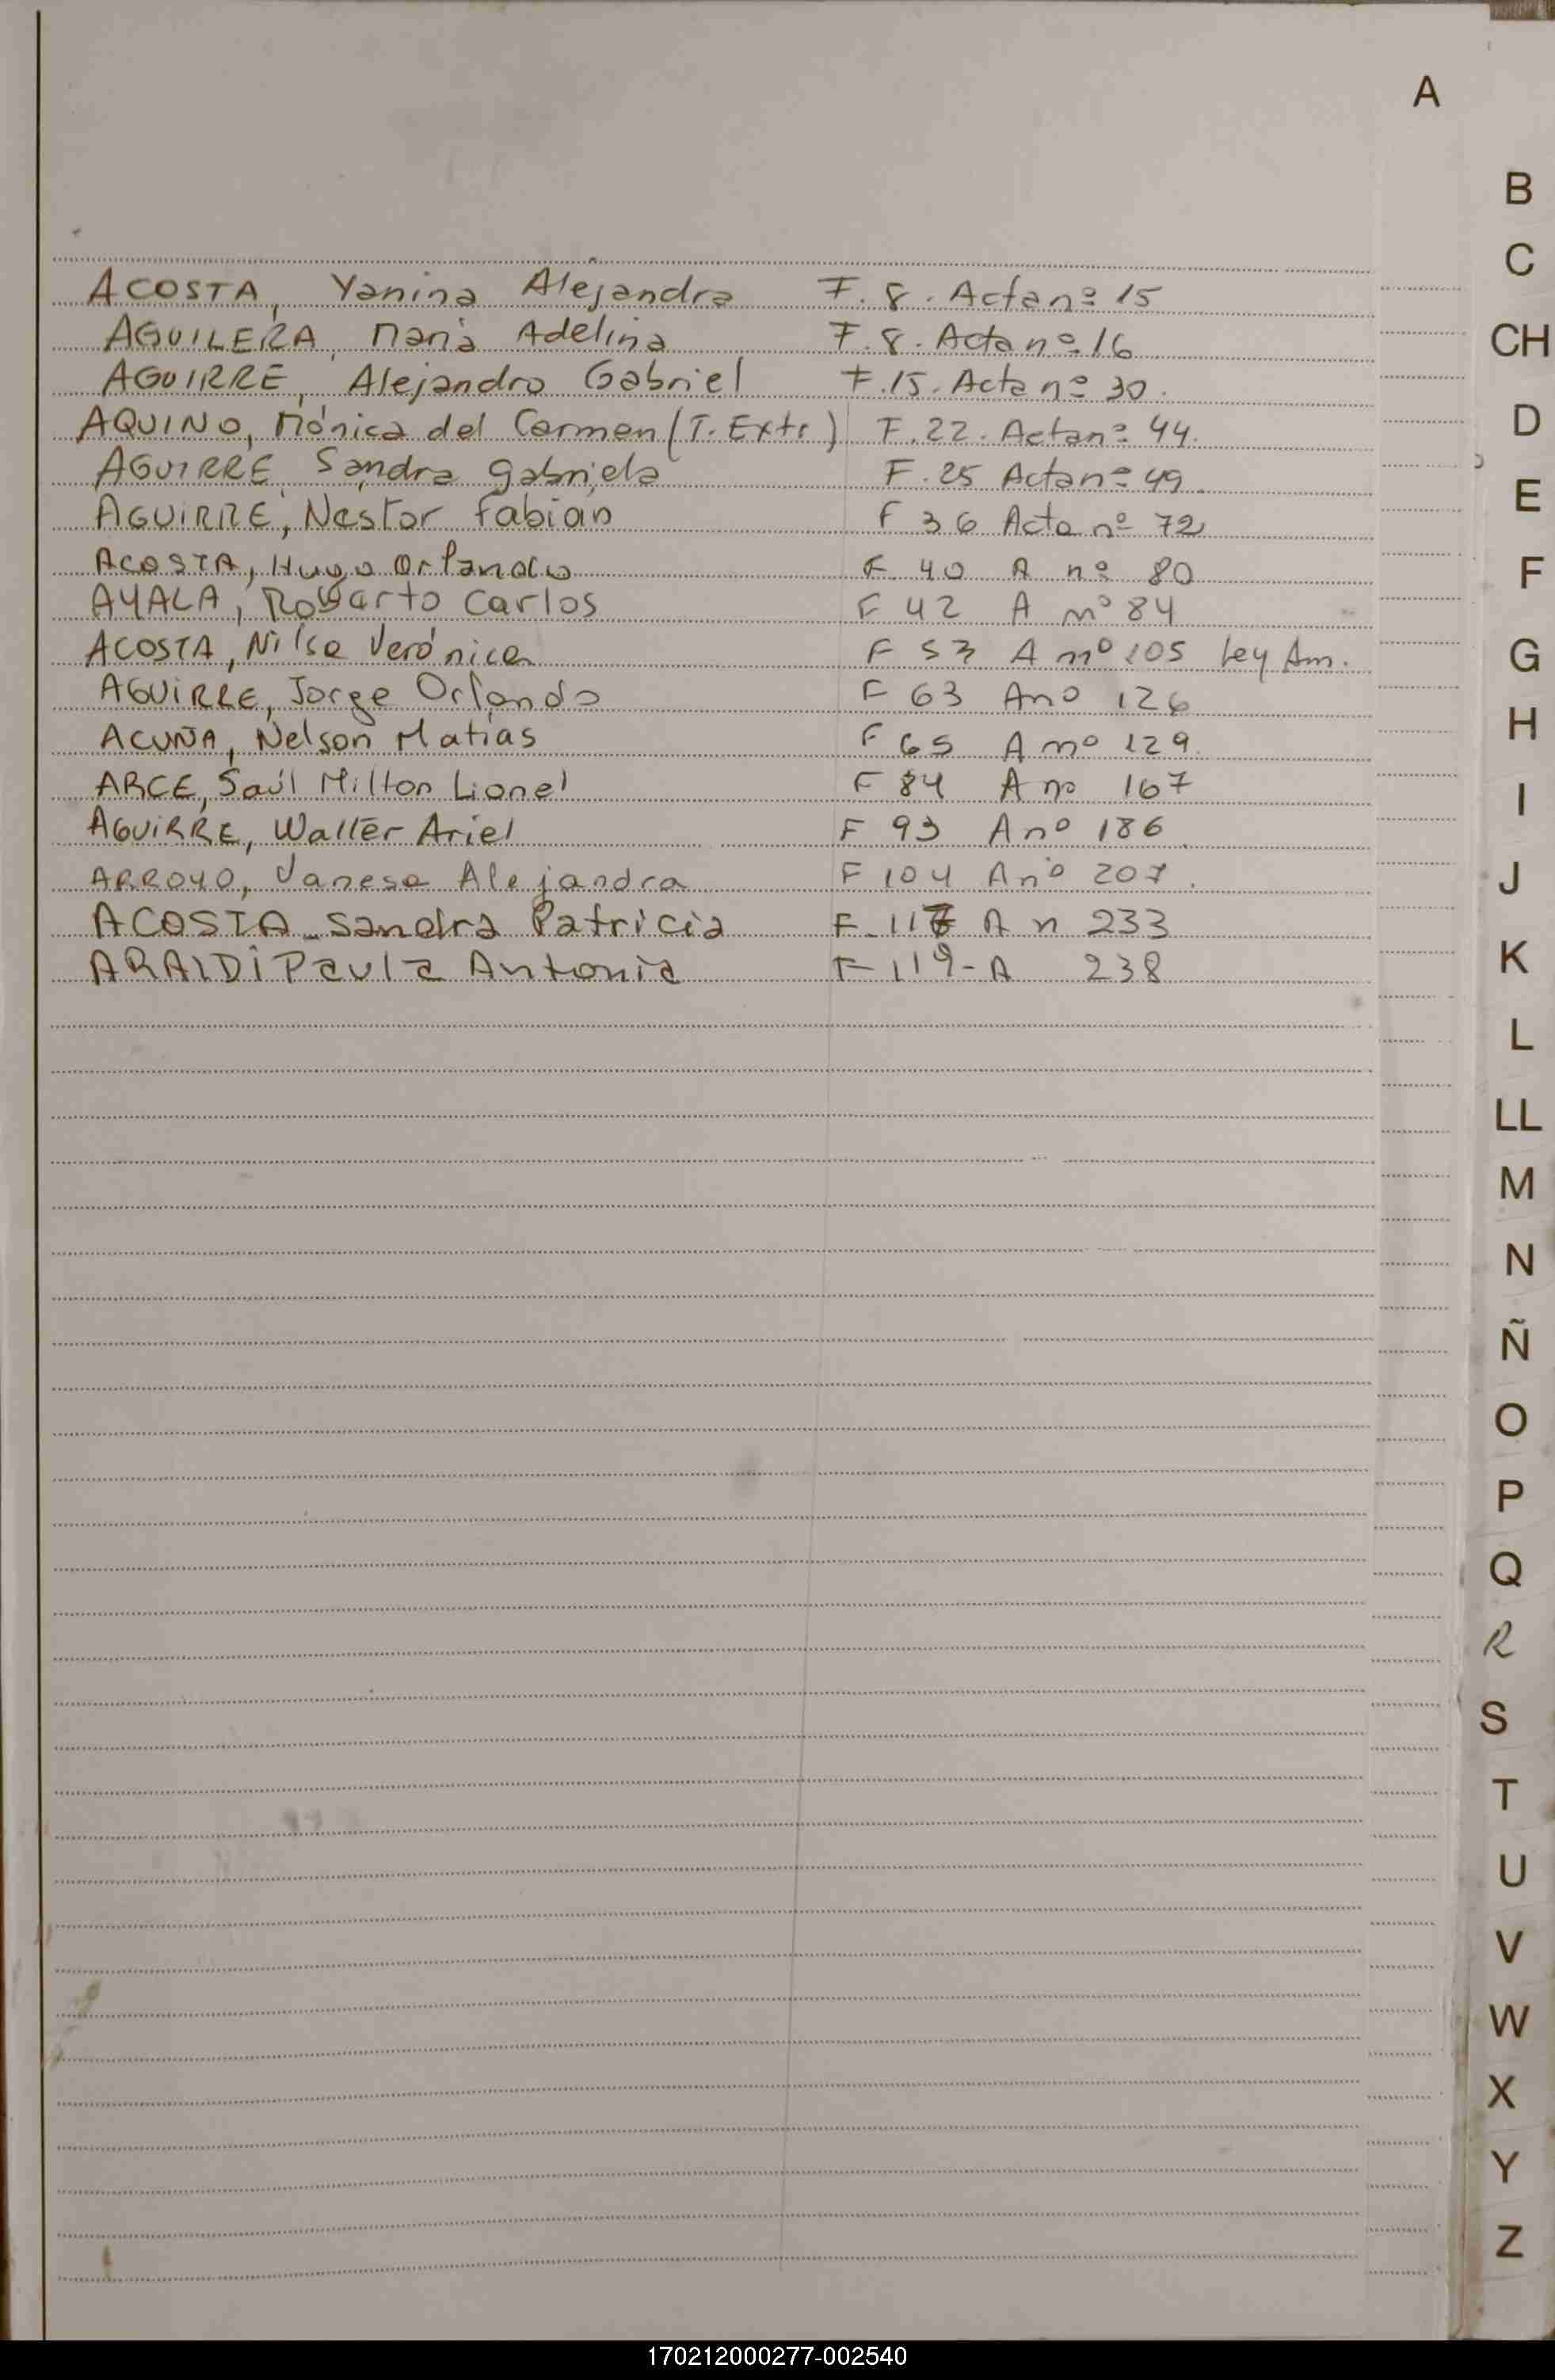 A
ACOSTA, Yanina Alejandra F. 8. Acta nº 15
AGUILERA, María Adelina F. 8. Acta nº 16
AGUIRRE, Alejandro Gabriel F. 15. Acta nº 30.
AQUINO, Mónica del Carmen (T. Extr.) F. 22. Acta nº 44.
AGUIRRE, Sandra Gabriela F. 25 Acta nº 49.
AGUIRRE, Nestor Fabian F 36 Acta nº 72
ACOSTA, Hugo Orlando F 40 A nº 80
AYALA, Roberto Carlos F 42 A nº 84
ACOSTA, Nilsa Verónica F 53 A nº 105 Ley Am.
AGUIRRE, Jorge Orlando F 63 A nº 126
ACUÑA, Nelson Matias F 65 A nº 129
ARCE, Saúl Milton Lionel F 84 A nº 167
AGUIRRE, Walter Ariel F 93 A nº 186
ARROYO, Vanesa Alejandra F 104 A nº 207.
ACOSTA - Sandra Patricia F. 117 A n 233
ARALDI Paula Antonia F 119 - A 238
B
C
CH
D
E
F
G
H
I
J
K
L
LL
M
N
Ñ
O
P
Q
R
S
T
U
V
W
X
Y
Z
170212000277-002540